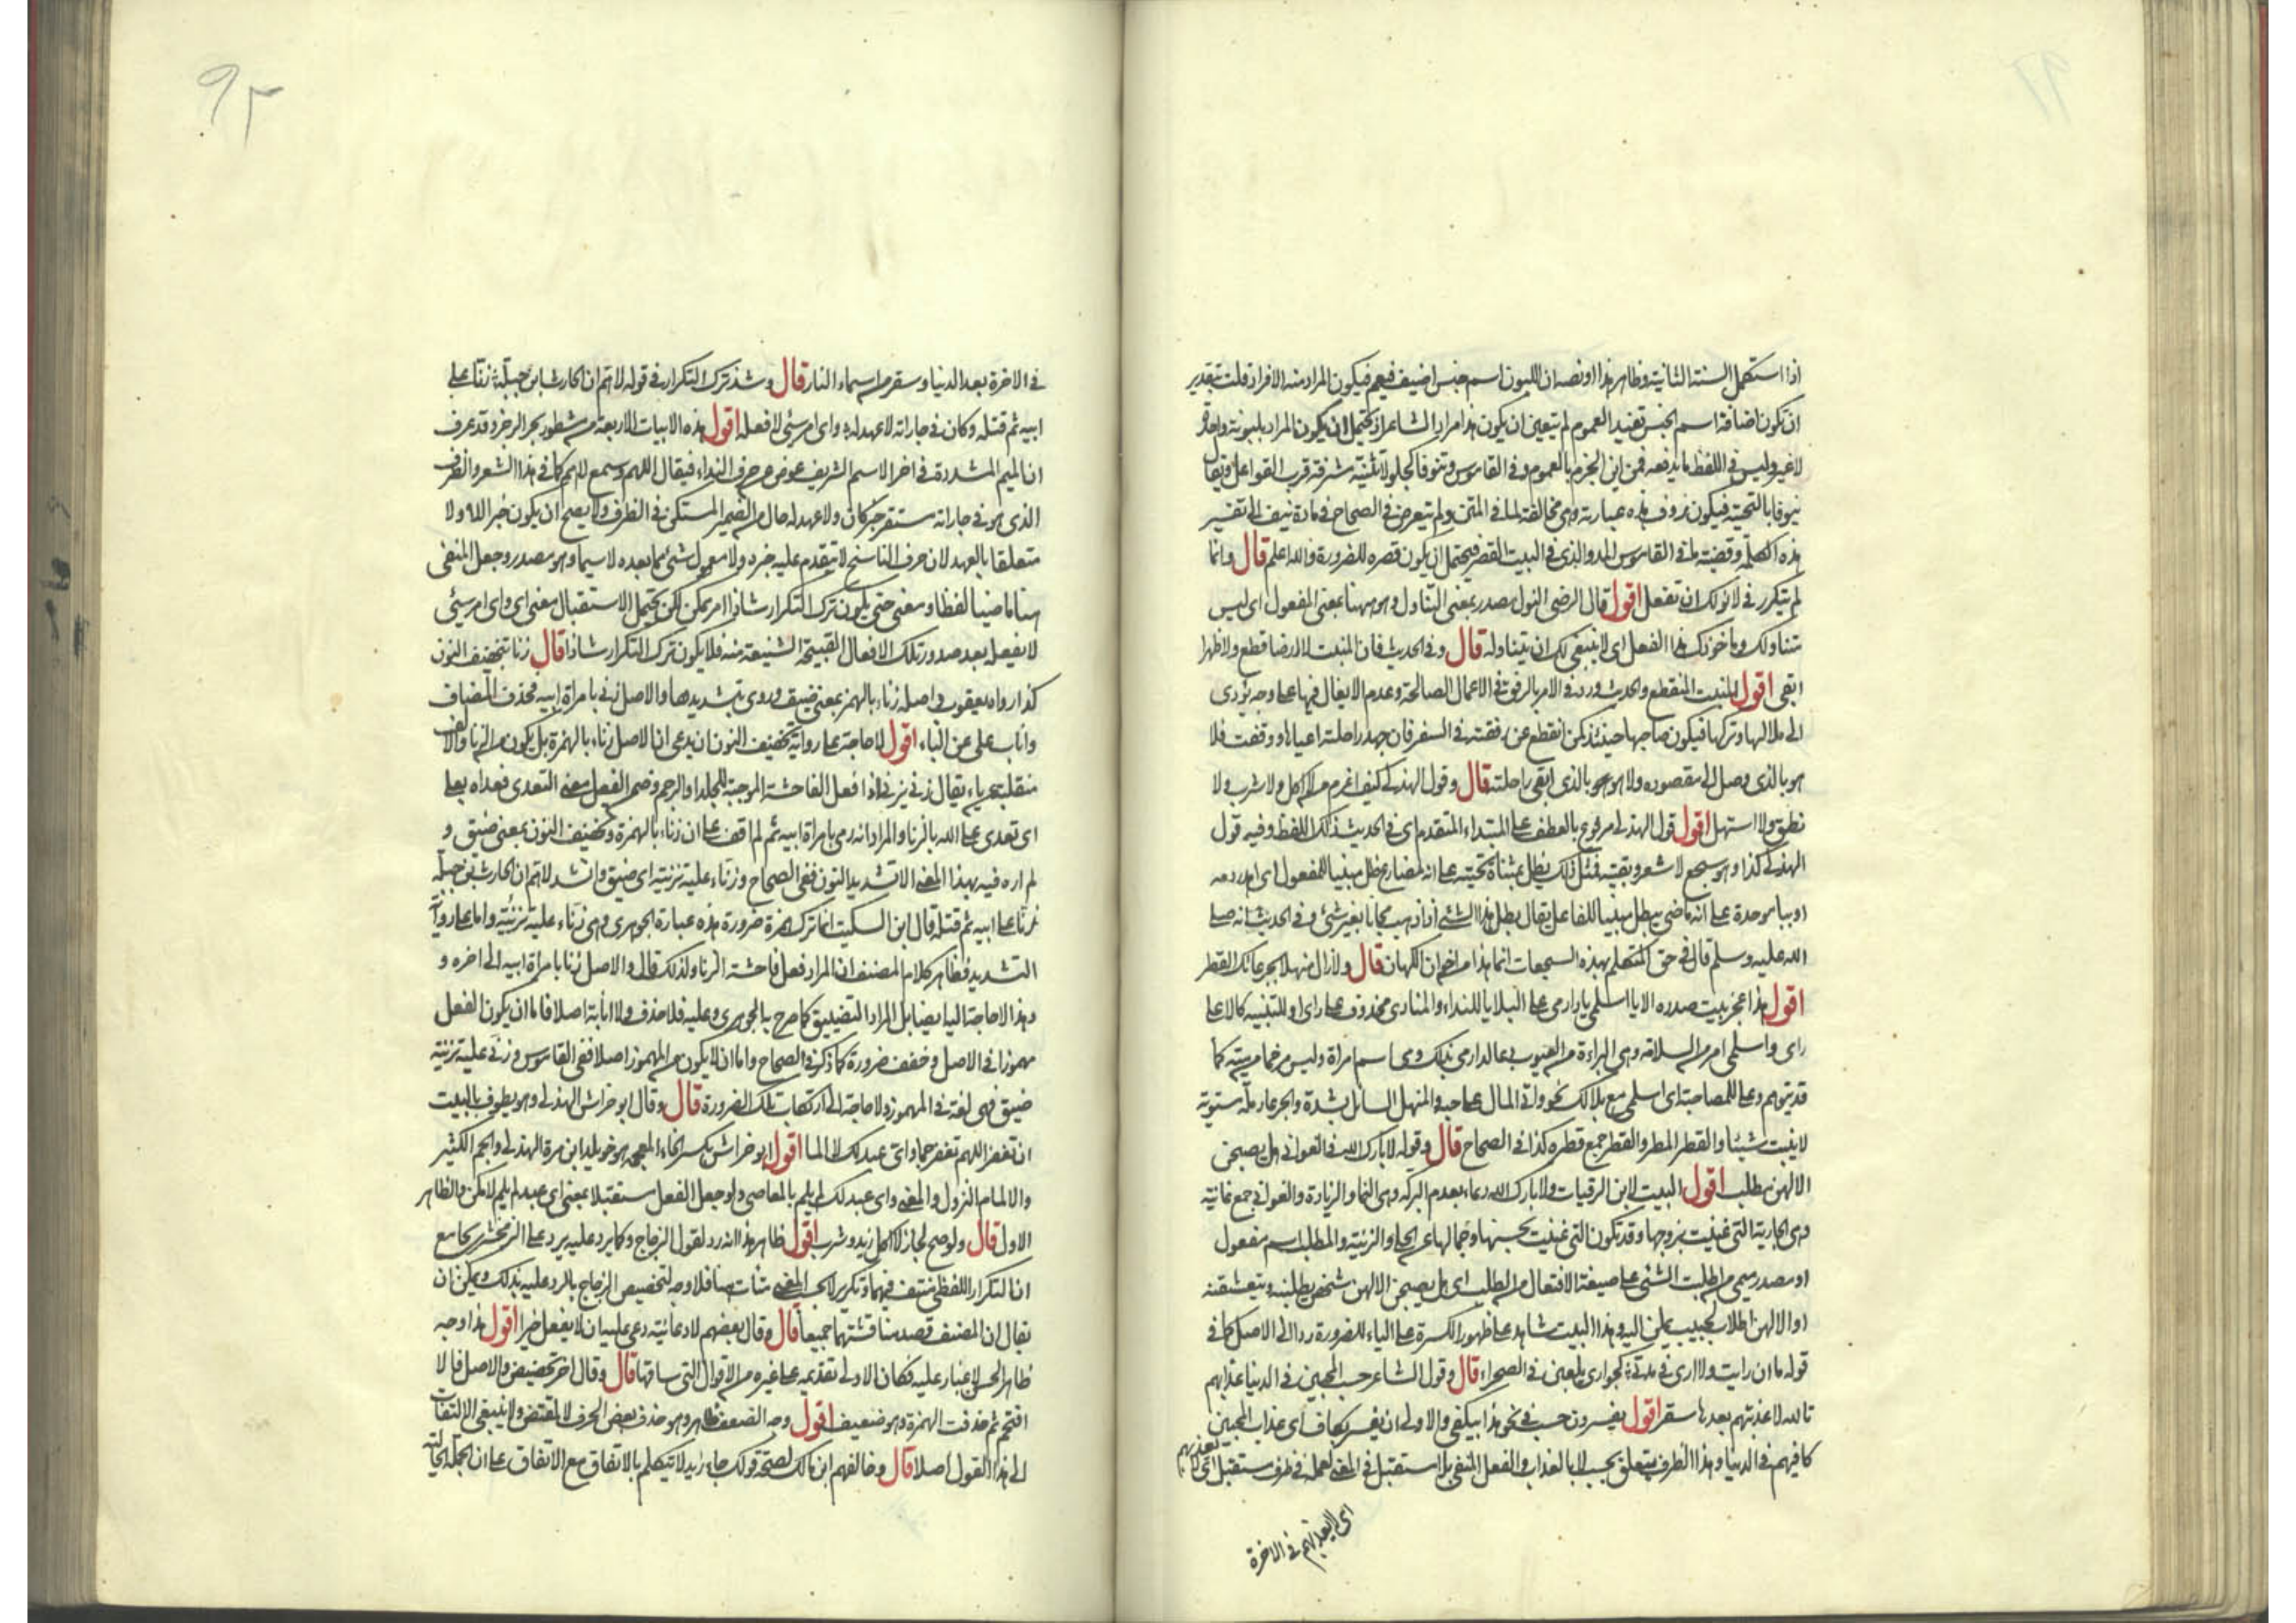 اذا استكمل السنة الثانية وظاهر هذا او نصه ان اللبون اسم جنس اضيف فيعم فيكون المراد منه الافراد قلت بتقدير
ان تكون اضافة اسم الجنس تفيد العموم لم يتعين ان يكون هذا مراد الشاعر اذ يحتمل ان يكون المراد بلبونه واحدة
لا غير وليس في اللفظ ما يدفعه فمن اين الجزم بالعموم وفي القاموس وتنوفا كجلولا ثنية مشرفة قرب القواعل ويقال
ينوفا بالتحتية فيكون هذه عبارته وهي مخالفة لما في المتن ولم يتعرض في الصحاح في مادة نيف الى تفسير
هذه الكلمة وقضية ما في القاموس المد والذي في البيت القصر فيحتمل ان يكون قصره للضرورة والله اعلم قال وانما
لم يتكرر في لا نولك ان تفعل اقول قال الرضي النول مصدر بمعنى التناول وهو ههنا بمعنى المفعول اي ليس
متناولك وماخوذك هذا الفعل اي لا ينبغي لك ان تتناوله قال وفي الحديث فان المنبت لا ارضا قطع ولا ظهرا
ابقى اقول المنبت المنقطع والحديث ورد في الامر بالرفق في الاعمال الصالحة وعدم الايغال فيها على وجه يؤدي
الى ملالها وتركها فيكون صاحبها حينئذ كمن انقطع عن رفقته في السفر فان جهد راحلته اعياها ووقفت فلا
هو بالذي وصل الى مقصوده ولا هو بالذي ابقى راحلته قال وقول الهذلي كيف اغرم من لا اكل ولا شرب ولا
نطق ولا استهل اقول قول الهذلي مرفوع بالعطف على المبتداء المتقدم اي في الحديث ذلك اللفظ وفيه قول
الهذلي كذا وهو سجع لا شعر وبقيته فمثل ذلك يطل بمثناة تحتية على انه مضارع طل مبنيا للمفعول اي اهدر دمه
او ببا موحدة على انه ماضي يبطل مبنيا للفاعل يقال بطل هذا الشئ اذا ذهب مجانا بغير شئ وفي الحديث انه صلى
الله عليه وسلم قال في حق المتكلم بهذه السجعات انما هذا من اخوان الكهان قال ولا زال منهلا بجرعائك القطر
اقول هذا عجز بيت صدره الا يا اسلمي يا دار مي على البلا يا للنداء والمنادى محذوف على راي او للتنبيه كالا على
راي واسلمي امر من السلامة وهي البراءة من العيوب دعا لدار مي بذلك ومي اسم امراة وليس مرخما من مية كما
قد يتوهم وعلى للمصاحبة اي اسلمي مع بلاك نحو واتى المال على حبه والمنهل السائل بشدة والجرعا رملة مستوية
لا ينبت شيئا والقطر المطر والقطر جمع قطرة كذا في الصحاح قال وقوله لا بارك الله في الغواني هل يصبحن
الا لهن مطلب اقول البيت لابن الرقيات ولا بارك الله دعاء بعدم البركة وهي النماء والزيادة والغواني جمع غانية
وهي الجارية التي غنيت بزوجها وقد تكون التي غنيت بحسنها وجمالها عن الحلي والزينة والمطلب اسم مفعول
او مصدر ميمي من اطلبت الشئ على صيغة الافتعال من الطلب اي هل يصبحن الا لهن شخص يطلبنه ويتعشقنه
او الا لهن اطلاب لحبيب يملن اليه وهذا البيت شاهد على ظهور الكسرة على الياء للضرورة ردا الى الاصل كما في
قوله ما ان رايت ولا ارى في مدتي كجواري يلعبن في الصحراء قال وقول الشاعر حسب المحبين في الدنيا عذابهم
تالله لا عذبتهم بعدها سقر اقول يفسرون حسب في نحو هذا بيكفي والاولى ان يفسر بكاف اي عذاب المحبين
كافيهم في الدنيا وهذا الظرف يتعلق بحسب لا بالعذاب والفعل المنفي بلا مستقبل في المعنى لعمله في ظرف مستقبل اي لا تعذبهم
اي لا يعذبهم في الاخرة
٩٣
في الاخرة بعد الدنيا وسقر من اسماء النار قال وشذ ترك التكرار في قوله لا هم ان الحارث بن جبلة زنا على
ابيه ثم قتله وكان في جاراته لا عهد له واي امر سيئ لا فعله اقول هذه الابيات الاربعة من مشطور بحر الرجز وقد عرف
ان الميم المشددة في اخر الاسم الشريف عوض من حرف النداء فيقال اللهم وسمع لاهم كما في هذا الشعر والظرف
الذي هو في جاراته مستقر خبر كان ولا عهد له حال من الضمير المستكن في الظرف ولا يصح ان يكون خبر اللا ولا
متعلقا بالعهد لان حرف الناسخ لا يتقدم عليه خبره ولا معمول شئ مما بعده لاسيما وهو مصدر وجعل المنفى
هنا ماضيا لفظا ومعنى حتى يكون ترك التكرار شاذا امر يمكن لكن يحتمل الاستقبال معنى اي واي امر سيئ
لا يفعله بعد صدور تلك الافعال القبيحة الشنيعة منه فلا يكون ترك التكرار شاذا قال زنا بتخفيف النون
كذا رواه يعقوب واصله زناء بالهمز بمعنى ضيق وروي بتشديدها والاصل زنى بامراة ابيه فحذف المضاف
واناب على عن الباء اقول لا حاجة على رواية تخفيف النون ان يدعى ان الاصل زناء بالهمزة بل يكون من الزنا والالف
منقلبة عن ياء يقال زنى يزني اذا فعل الفاحشة الموجبة للجلد او الرجم وضمن الفعل معنى التعدى فعداه بعلى
اي تعدى على الله بالزنا والمراد انه رمى بامراة ابيه ثم لم اقف على ان زناء بالهمزة وتخفيف النون بمعنى ضيق و
لم اره فيه بهذا المعنى الا تشديد النون ففي الصحاح وزناء عليه تزنية اي ضيق وانشد لا هم ان الحارث بن جبلة
زنا على ابيه ثم قتله قال ابن السكيت انما ترك همزة ضرورة هذه عبارة الجوهري وهي زناء عليه تزنئة واما على رواية
التشديد فظاهر كلام المصنف ان المراد فعل فاحشة الزنا ولذلك قال والاصل زنا بامراة ابيه الى اخره و
وهذا لا حاجة اليه ايضا بل المراد التضييق كما صرح به الجوهري وعليه فلا حذف ولا انابة اصلا فاما ان يكون الفعل
مهموزا في الاصل وخفف ضرورة كما ذكر في الصحاح واما ان لا يكون من المهموز اصلا ففي القاموس وزنى عليه تزنية
ضيق فهي لغة في المهموز ولا حاجة الى ارتكاب تلك الضرورة قال وقال ابو خراش الهذلي وهو يطوف بالبيت
ان تغفر اللهم تغفر جما واي عبد لك لا الما اقول ابو خراش بكسر الخاء المعجمة هو خويلد ابن مرة الهذلي والجم الكثير
والالمام النزول والمعنى واي عبد لك لم يلم بالمعاصي ولو جعل الفعل مستقبلا بمعنى اي عبد لم يلم لامكن والظاهر
الاول قال ولو صح لجاز لا اكل زيد وشرب اقول ظاهر هذا انه رد لقول الزجاج وكما يرد عليه يرد على الزمخشري بجامع
ان التكرار اللفظي منتف فيهما وتكرير لا بحسب المعنى متأت هنا فلا وجه لتخصيص الزجاج بالرد عليه بذلك ويمكن ان
يقال ان المصنف قصد مناقشتهما جميعا قال وقال بعضهم لا دعائية دعي عليه ان لا يفعل خيرا اقول هذا وجه
ظاهر الحسن لا غبار عليه فكان الاولى تقديمه على غيره من الاقوال التي ساقها قال وقال اخر تحضيض والاصل فالا
اقتحم ثم حذفت الهمزة وهو ضعيف اقول وجه الضعف ظاهر وهو حذف بعض الحرف لا لمقتض ولا ينبغي الالتفات
الى هذا القول اصلا قال وخالفهم ابن مالك لصحة قولك جاء زيد لا يتكلم بالاتفاق مع الاتفاق على ان الجملة الحالية